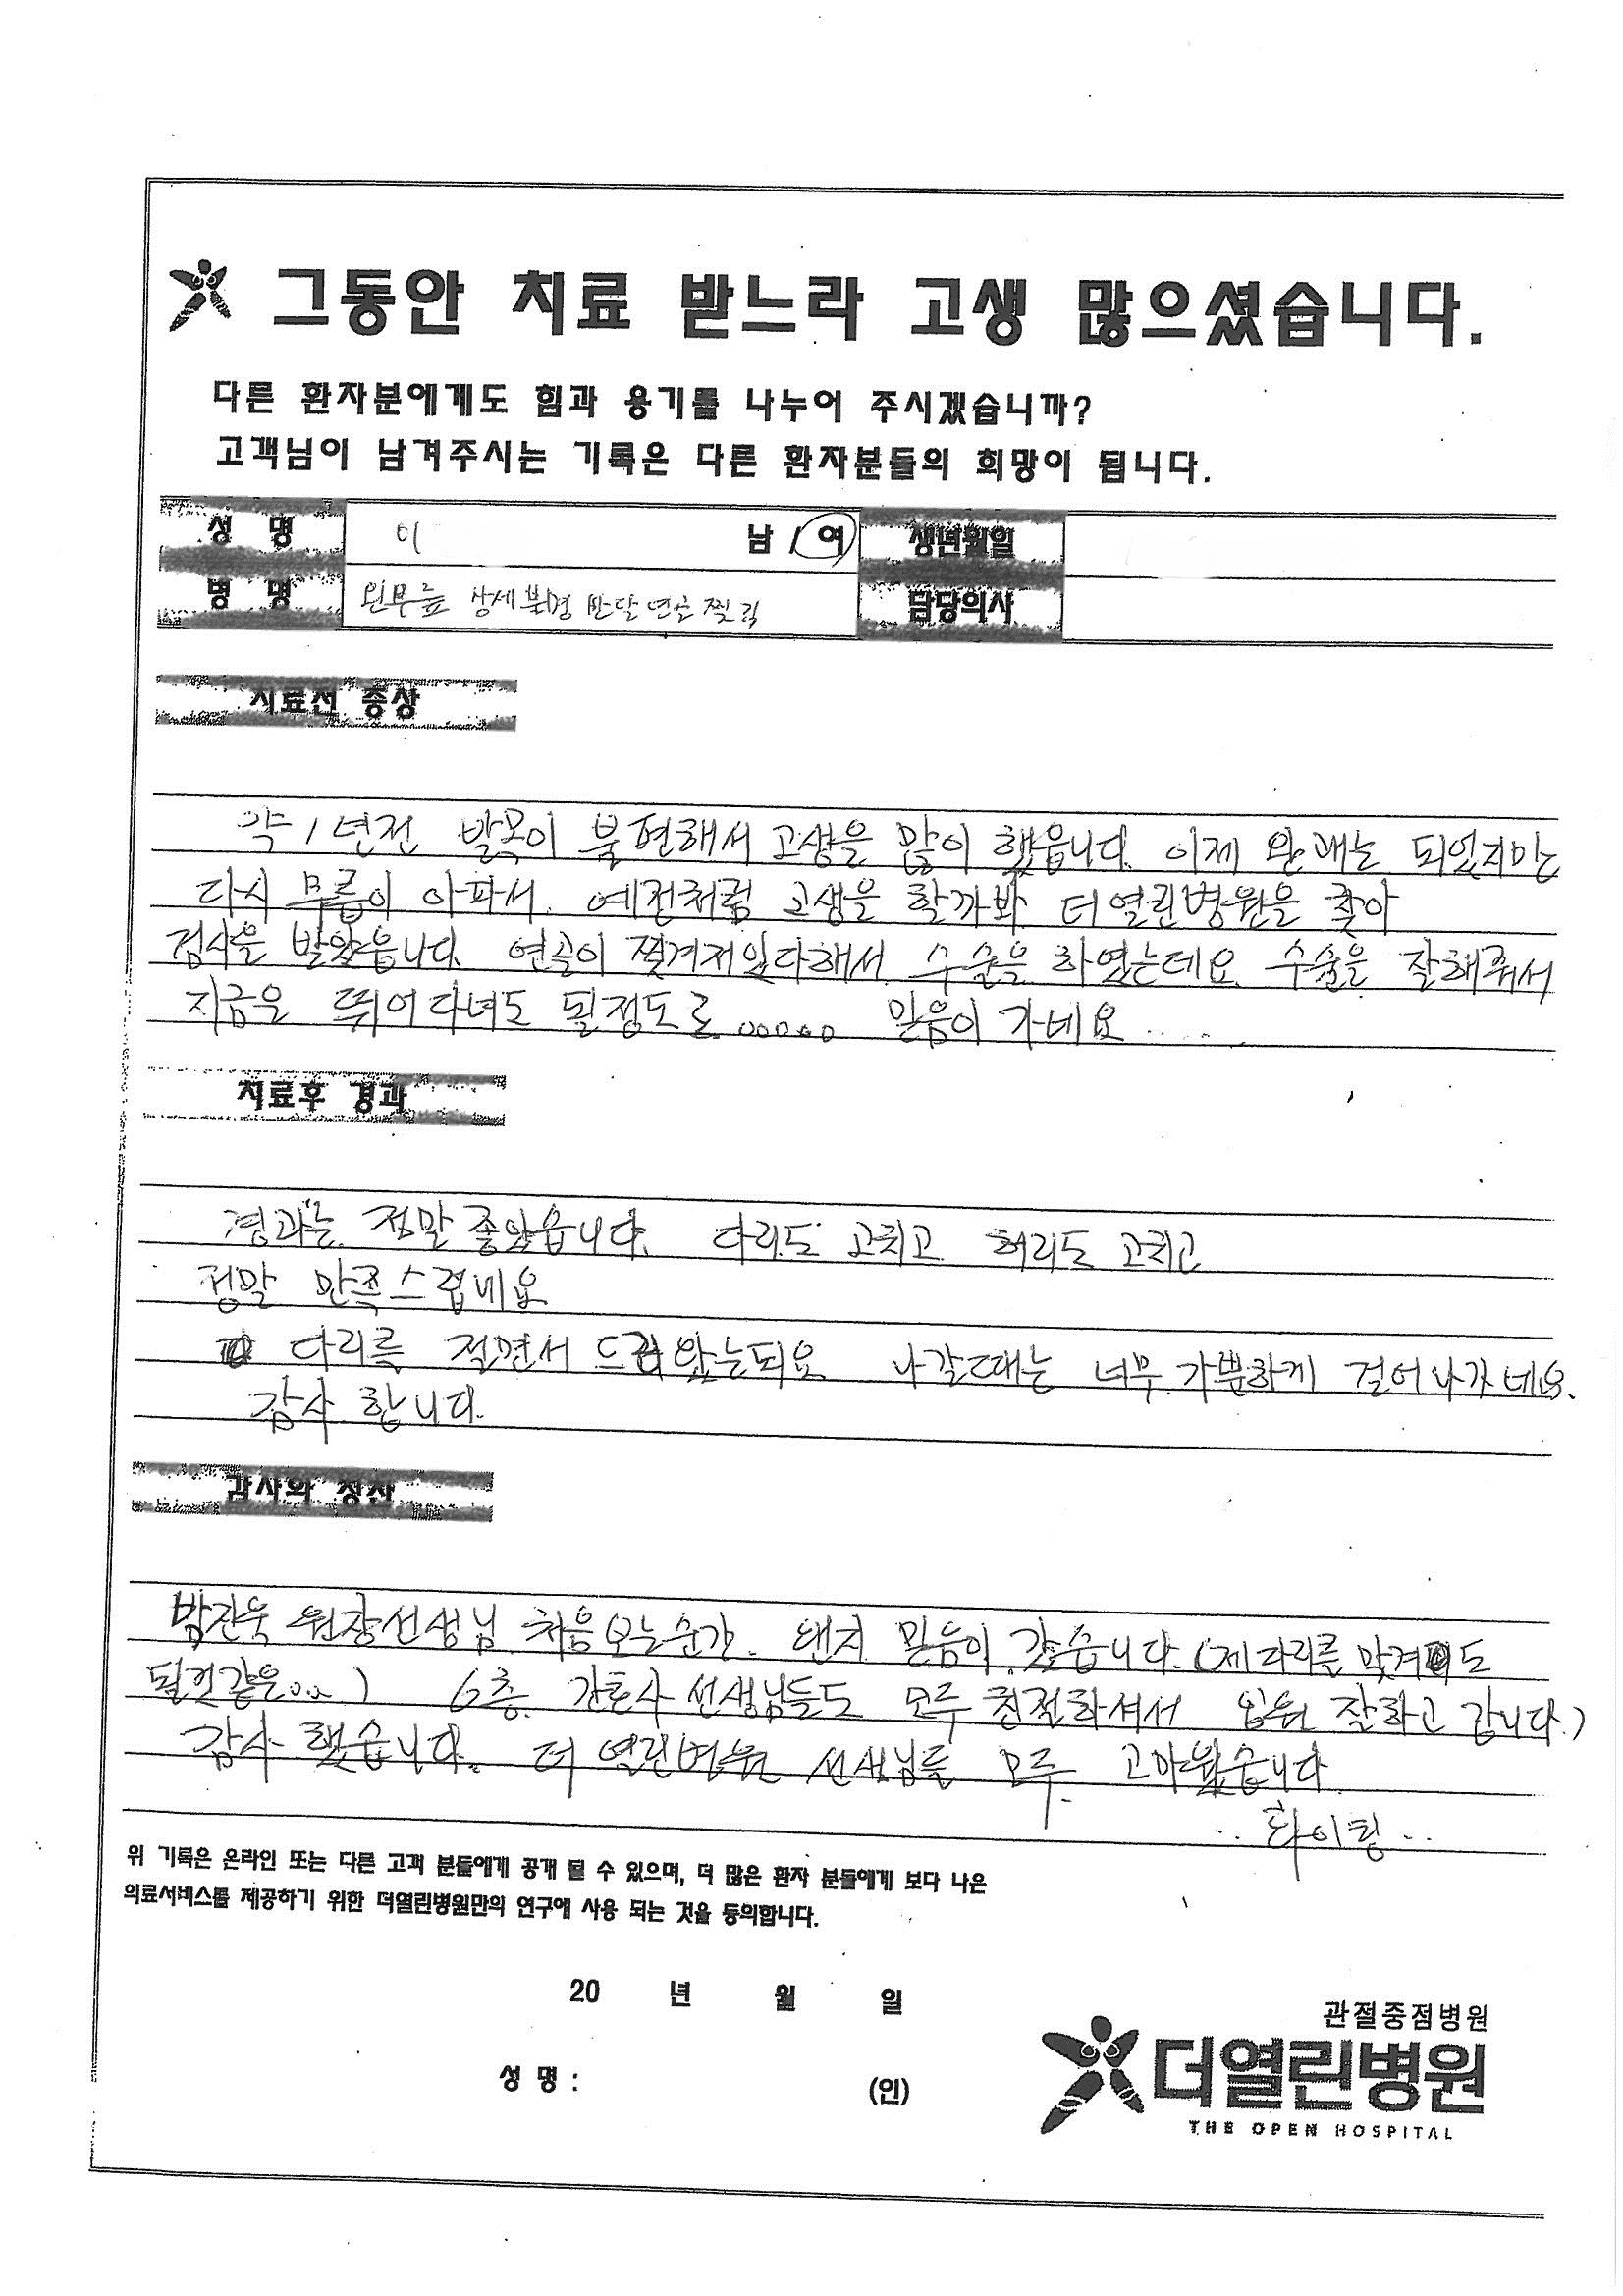 그동안 치료 받느라 고생 많으셨습니다.
다른 환자분에게도 힘과 용기를 나누어 주시겠습니까?
고객님이 남겨주시는 기록은 다른 환자분들의 희망이 됩니다.
성 명 이 남 / 여 생년월일
병 명 왼무릎 상세불명 반달연골 찢김 담당의사
치료전 증상
약 1년전 발목이 불편해서 고생을 많이 했읍니다. 이제 완쾌는 되었지만
다시 무릎이 아파서. 예전처럼 고생을 할까봐 더열린병원을 찾아
검사을 받았읍니다. 연골이 찢겨저있다해서 수술을 하였는데요 수술을 잘해줘서
지금은 뛰어다녀도 될정도로..... 믿음이 가네요.....
치료후 경과
경과는 정말 좋았읍니다. 다리도 고치고 허리도 고치고
정말 만족스럽네요
다리를 절면서 드러왔는되요 나갈때는 너무 가뿐하게 걸어나가네요.
감사 합니다.
감사와 칭찬
박진욱 원장선생님 처음보는순간. 왠지 믿음이 갔습니다. (제다리를 맞겨도
될것같은..) 6층 간호사 선생님들도 모두 친절하셔서 입원 잘하고 갑니다.)
감사 했습니다. 더 열린병원 선생님들 모두 고마웠습니다
.. 화이팅 ..
위 기록은 온라인 또는 다른 고객 분들에게 공개 될 수 있으며, 더 많은 환자 분들에게 보다 나은
의료서비스를 제공하기 위한 더열린병원만의 연구에 사용 되는 것을 동의합니다.
20 년 월 일
성 명 : (인)
관절중점병원
더열린병원
THE OPEN HOSPITAL